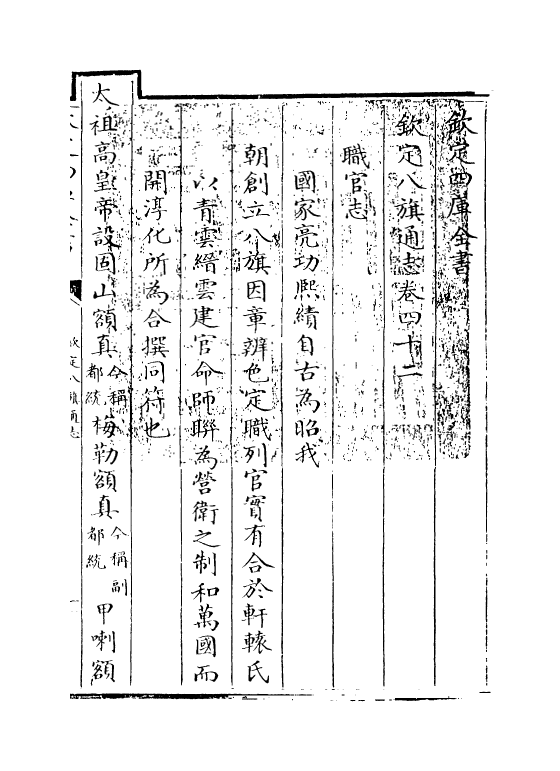 欽定四庫全書
欽定八旗通志卷四十二
職官志
國家亮功熙績自古為昭我
朝創立八旗因章辨色定職列官實有合於軒轅氏
以青雲縉雲建官命師聯為營衛之制和萬國而
開淳化所為合撰同符也
太祖高皇帝設固山額真今稱都統梅勒額真今稱副都統甲喇額
欽定八旗通志
一